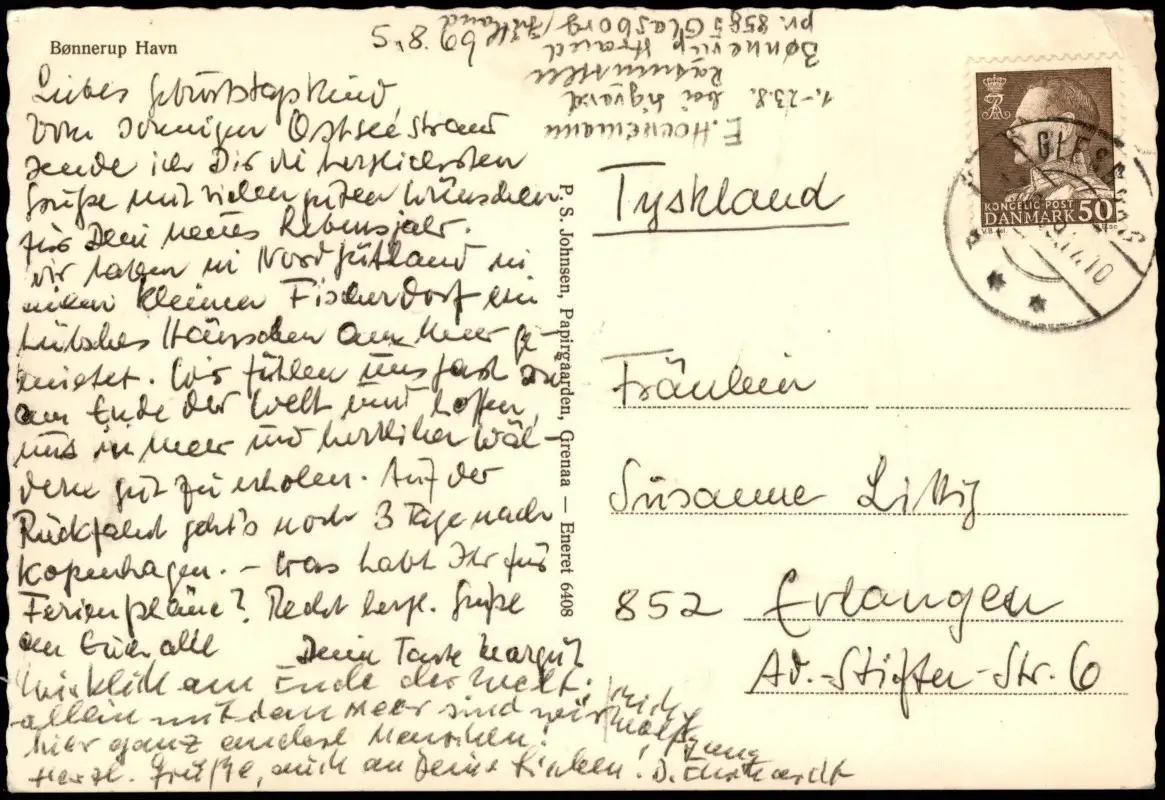 Bønnerup Havn
5.8.69
E. Hornemann
1.-23.8. bei Sigvard
Rasmussen
Bønnerup Strand
pr. 8585 Glasborg / Jütland
Liebes Geburtstagskind,
Vom sonnigen Ostseestrand
sende ich Dir die herzlichsten
Grüße mit vielen guten Wünschen
für Dein neues Lebensjahr.
Wir haben in Nordjütland in
einem kleinen Fischerdorf ein
hübsches Häuschen am Meer ge-
mietet. Wir fühlen uns fast so
am Ende der Welt und hoffen,
uns in Meer und herrlichen Wäl-
dern gut zu erholen. Auf der
Rückfahrt geht's noch 3 Tage nach
Kopenhagen. - Was habt Ihr für
Ferienpläne? Recht herzl. Grüße
an Euch alle Deine Tante Margrit
Wirklich am Ende der Welt.
allein mit dem Meer sind wir
hier ganz andere Menschen!
Herzl. Grüße, auch an Deine Lieben!
P. S. Johnsen, Papirgaarden, Grenaa — Eneret 6408
KONGELIG POST
DANMARK 50
Tyskland
Fräulein
Susanne Littig
852 Erlangen
Ad.-Stifter-Str. 6